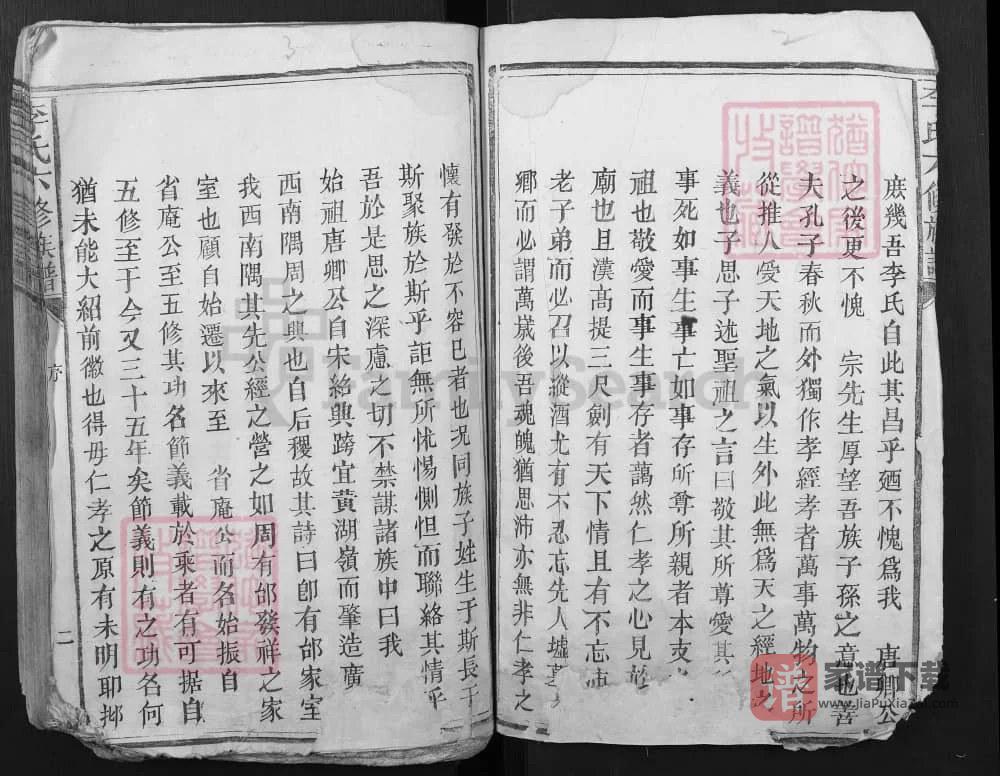 3
2
李氏六修族譜
庶幾吾李氏自此其昌乎廼不愧爲我 唐卿公
之後更不愧 宗先生厚望吾族子孫之意也善
夫孔子春秋而外獨作孝經孝者萬事萬物之所
從推人受天地之氣以生外此無爲天之經地之
義也子思子述聖祖之言曰敬其所尊愛其
事死如事生事亡如事存所尊所親者本支
祖也敬愛而事生事存者藹然仁孝之心見於
廟也且漢高提三尺劍有天下情且有不忘沛
老子弟而必召以縱酒尤有不忍忘先人墟墓
鄉而必謂萬歲後吾魂魄猶思沛亦無非仁孝之
懷有發於不容已者也況同族子姓生于斯長于
斯聚族於斯乎詎無所怵惕惻怛而聯絡其情乎
吾於是思之深慮之切不禁謀諸族中曰我
始祖唐卿公自宋紹興跨宜黃湖嶺而肇造廣
西南隅周之興也自后稷故其詩曰卽有邰家室
我西南隅其先公經之營之如周有邰發祥之家
室也顧自始遷以來至 省庵公而名始振自
省庵公至五修其功名節義載於乘者有可据自
五修至于今又三十五年矣節義則有之功名何
猶未能大紹前徽也得毋仁孝之原有未明耶抑
李氏六修族譜
序
二
FamilySearch
譜
家谱下载
www.JiaPuXiaZai.com